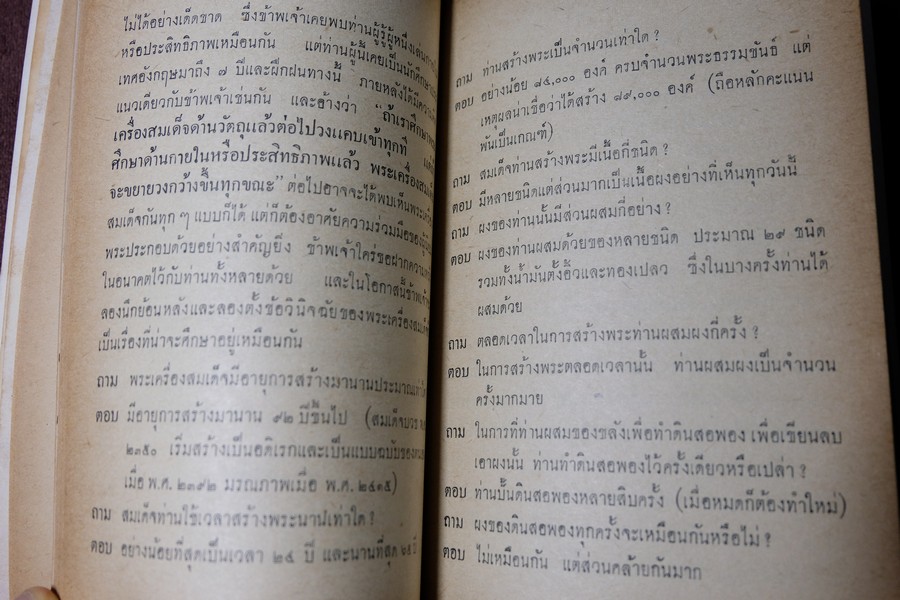 ไม่ได้อย่างเด็ดขาด ซึ่งข้าพเจ้าเคยพบท่านผู้รู้ผู้หนึ่ง
หรือประสิทธิภาพเหมือนกัน แต่ท่านผู้นี้เคยเป็นนักศึกษา
เทศอังกฤษมาถึง ๗ ปีและฝึกฝนทางนี้ ภายหลังได้มี
แนวเดียวกับข้าพเจ้าเช่นกัน และอ้างว่า "ถ้าเราศึกษา
เครื่องสมเด็จด้านวัตถุแล้วต่อไปวงแคบเข้าทุกที
ศึกษาด้านกายในหรือประสิทธิภาพแล้ว พระเครื่องสมเด็จ
จะขยายวงกว้างขึ้นทุกขณะ" ต่อไปอาจจะได้พบเห็นพระเครื่อง
สมเด็จกันทุก ๆ แบบก็ได้ แต่ก็ต้องอาศัยความร่วมมือของ
พระประกอบด้วยอย่างสำคัญยิ่ง ข้าพเจ้าใคร่ขอฝากความ
ในอนาคตไว้กับท่านทั้งหลายด้วย และในโอกาสนี้ข้าพเจ้า
ลองนึกย้อนหลังและลองตั้งข้อวินิจฉัยของพระเครื่องสมเด็จ
เป็นเรื่องที่น่าจะศึกษาอยู่เหมือนกัน
ถาม พระเครื่องสมเด็จมีอายุการสร้างมานานประมาณเท่าใด
ตอบ มีอายุการสร้างมานาน ๙๒ ปีขึ้นไป (สมเด็จบวช
๒๓๕๐ เริ่มสร้างเป็นอดิเรกและเป็นแบบฉบับของ
เมื่อ พ.ศ. ๒๓๙๒ มรณภาพเมื่อ พ.ศ. ๒๔๑๕)
ถาม สมเด็จท่านใช้เวลาสร้างพระนานเท่าใด ?
ตอบ อย่างน้อยที่สุดเป็นเวลา ๒๔ ปี และนานที่สุด
ถาม ท่านสร้างพระเป็นจำนวนเท่าใด ?
ตอบ อย่างน้อย ๘๔,๐๐๐ องค์ ครบจำนวนพระธรรมขันธ์ แต่
เหตุผลน่าเชื่อว่าได้สร้าง ๘๙,๐๐๐ องค์ (ถือหลักคะแนน
พันเป็นเกณฑ์)
ถาม สมเด็จท่านสร้างพระมีเนื้อกี่ชนิด ?
ตอบ มีหลายชนิดแต่ส่วนมากเป็นเนื้อผงอย่างที่เห็นทุกวันนี้
ถาม ผงของท่านนั้นมีส่วนผสมกี่อย่าง ?
ตอบ ผงของท่านผสมด้วยของหลายชนิด ประมาณ ๒๙ ชนิด
รวมทั้งน้ำมันตั้งอิ๊วและทองเปลว ซึ่งในบางครั้งท่านได้
ผสมด้วย
ถาม ตลอดเวลาในการสร้างพระท่านผสมผงกี่ครั้ง ?
ตอบ ในการสร้างพระตลอดเวลานั้น ท่านผสมผงเป็นจำนวน
ครั้งมากมาย
ถาม ในการที่ท่านผสมของขลังเพื่อทำดินสอพอง เพื่อเขียนลบ
เอาผงนั้น ท่านทำดินสอพองไว้ครั้งเดียวหรือเปล่า ?
ตอบ ท่านปั้นดินสอพองหลายสิบครั้ง (เมื่อหมดก็ต้องทำใหม่)
ถาม ผงของดินสอพองทุกครั้งจะเหมือนกันหรือไม่ ?
ตอบ ไม่เหมือนกัน แต่ส่วนคล้ายกันมาก